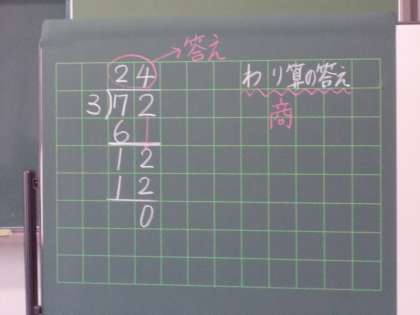 24→答え
3)72
6
12
12
0
わり算の答え
商